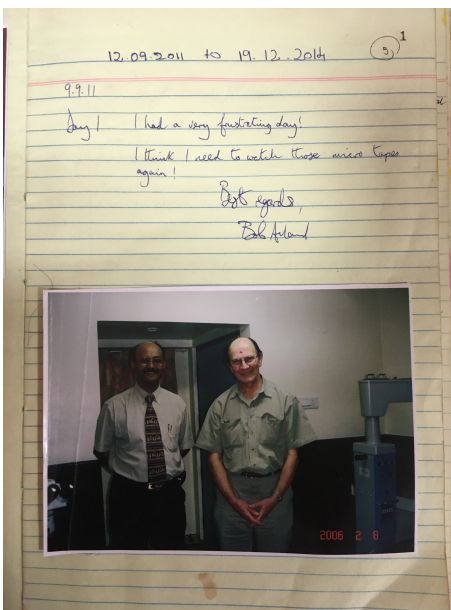 1
12.09.2011 to 19.12.2014
9.9.11
Day 1 I had a very frustrating day!
I think I need to watch those micro tapes
again!
Best regards,
Bob
2006 2 6